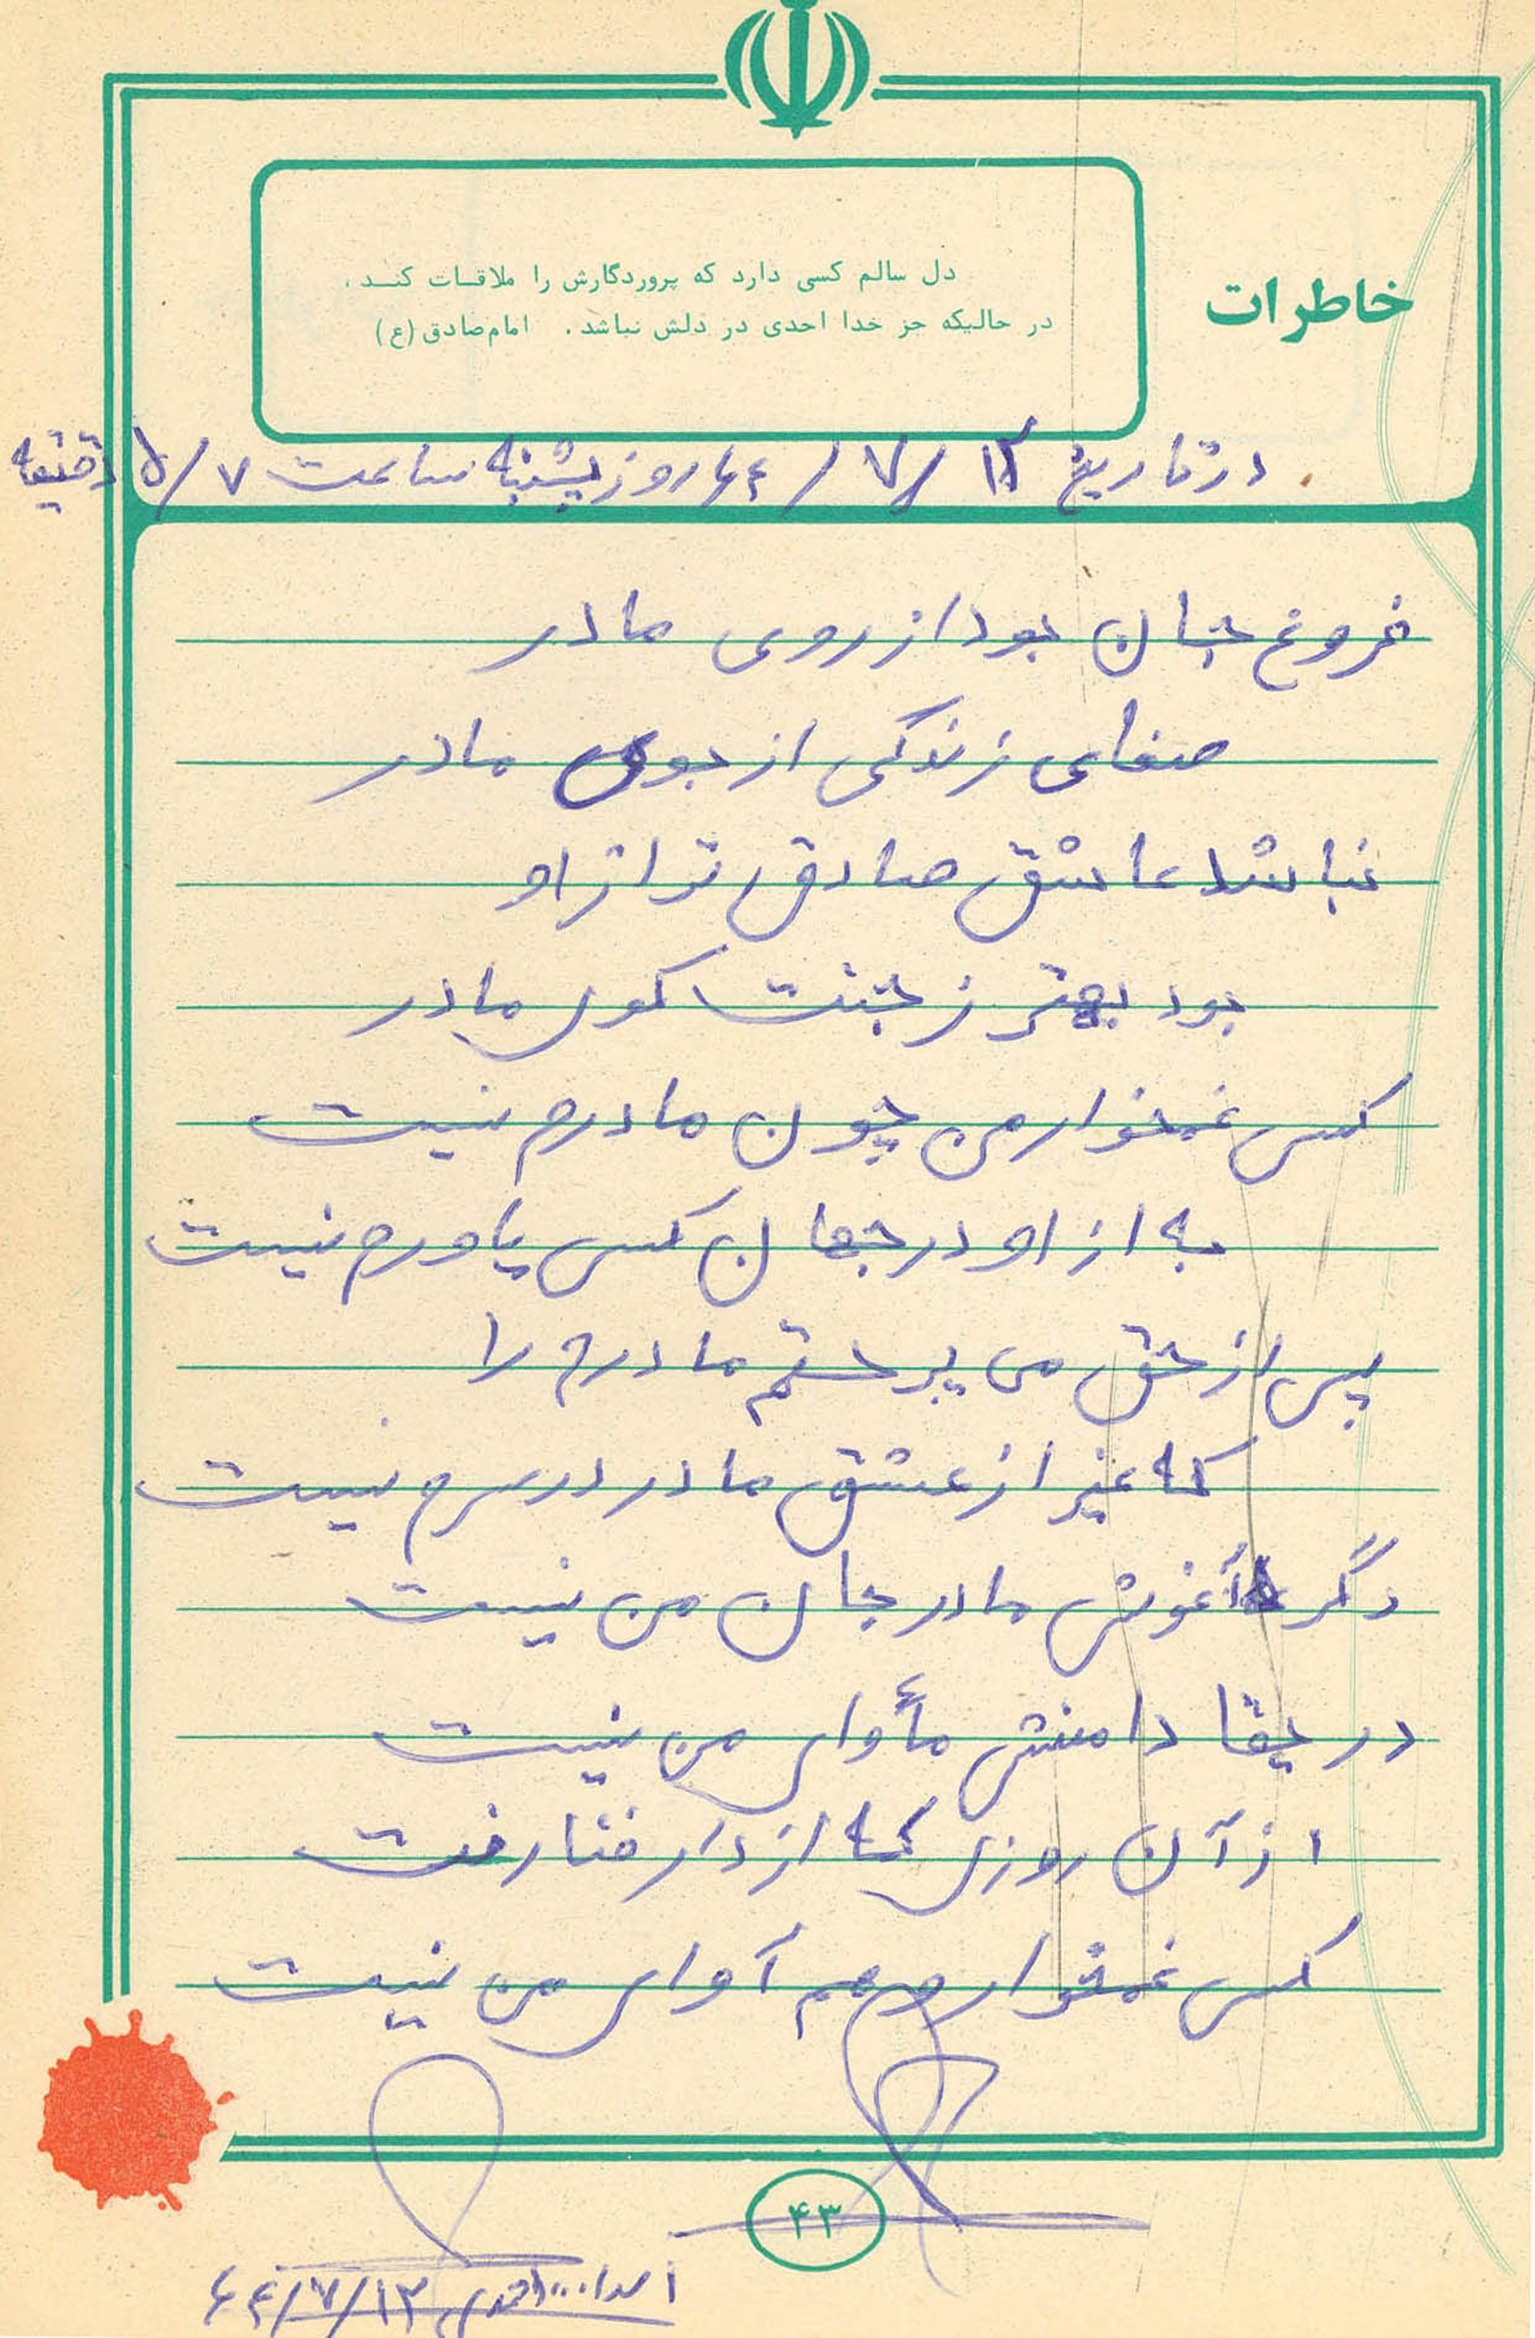 خاطرات
دل سالم کسی دارد که پروردگارش را ملاقات کند،
در حالیکه جز خدا احدی در دلش نباشد. امام صادق (ع)
در تاریخ ۱۳/۷/۶۴ روز پشنبه ساعت ۵/۷ دقیقه
فروغ جان بود از روی مادر
صفای زندگی از بوی مادر
نباشد عاشق صادق تر از او
بود بهتر ز جنت کوی مادر
کس غمخوار من چون مادرم نیست
به از او در جهان کس یاورم نیست
پس از حق می پرستم مادرم را
که غیر از عشق مادر در سرم نیست
دگر آغوش مادر جان من نیست
دریغا دامنش مأوای من نیست
از آن روزی که از دار فنا رفت
کس غمخوار و هم آوای من نیست
۴۳
اسدا... احمدی ۶۴/۷/۱۳